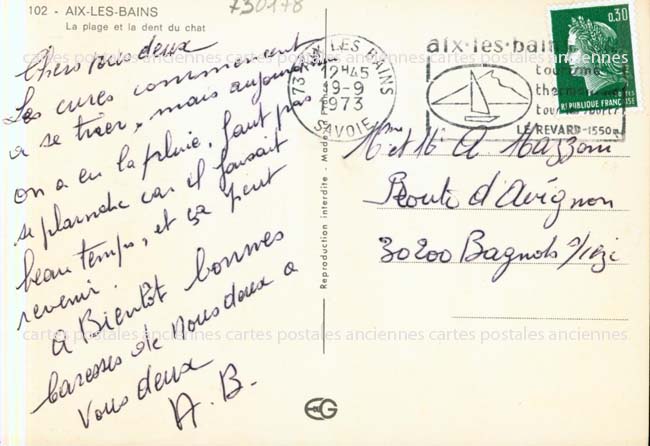 102 - AIX-LES-BAINS
La plage et la dent du chat
730178
Chers vous deux
Les cures commencent
a se tirer, mais aujourd'hui
on a eu la pluie, faut pas
se plaindre car il faisait
beau temps, et ça peut
revenir.
A Bientôt bonnes
Caresses de Nous deux a
Vous deux
A. B.
Reproduction interdite - Made
73 AIX LES BAINS
12H45
19-9
1973
SAVOIE
aix-les-bains
tourisme
thermalisme
LE REVARD-1550m
0,30
REPUBLIQUE FRANCAISE
M et Mme A Mazzoni
Route d'Avignon
30200 Bagnols s/ceze
EG
cartes postales anciennes cartes postales anciennes cartes postales anciennes
cartes postales anciennes cartes postales anciennes cartes postales anciennes